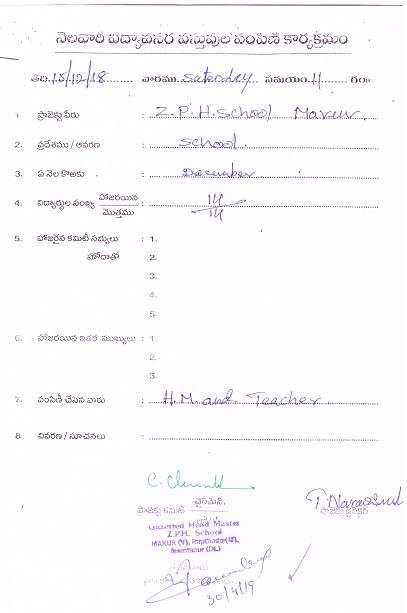 నెలవారీ విద్యావసర వస్తువుల పంపిణీ కార్యక్రమం
తేది. 15/12/18 వారము Saturday సమయం. 11 గం॥
1. ప్రాజెక్టు పేరు : Z.P.H.School Marur.
2. ప్రదేశము / ఆవరణ : School.
3. ఏ నెల కొఱకు : December
4. విద్యార్థుల సంఖ్య హాజరయిన / మొత్తము : 14 / 14
5. హాజరైన కమిటీ సభ్యులు : 1.
హోదాతో 2.
3.
4.
5.
6. హాజరయిన ఇతర ముఖ్యులు : 1.
2.
3.
7. పంపిణీ చేసిన వారు : H.M. and Teacher.
8. వివరణ / సూచనలు :
ఛైర్మెన్,
ప్రాజెక్టు కమిటీ
ప్రాజెక్టు డైరెక్టర్
Gazetted Head Master
Z.P.H. School
MARUR (V), Rapthadu(M),
Anantapur (Dt.)
30/4/19